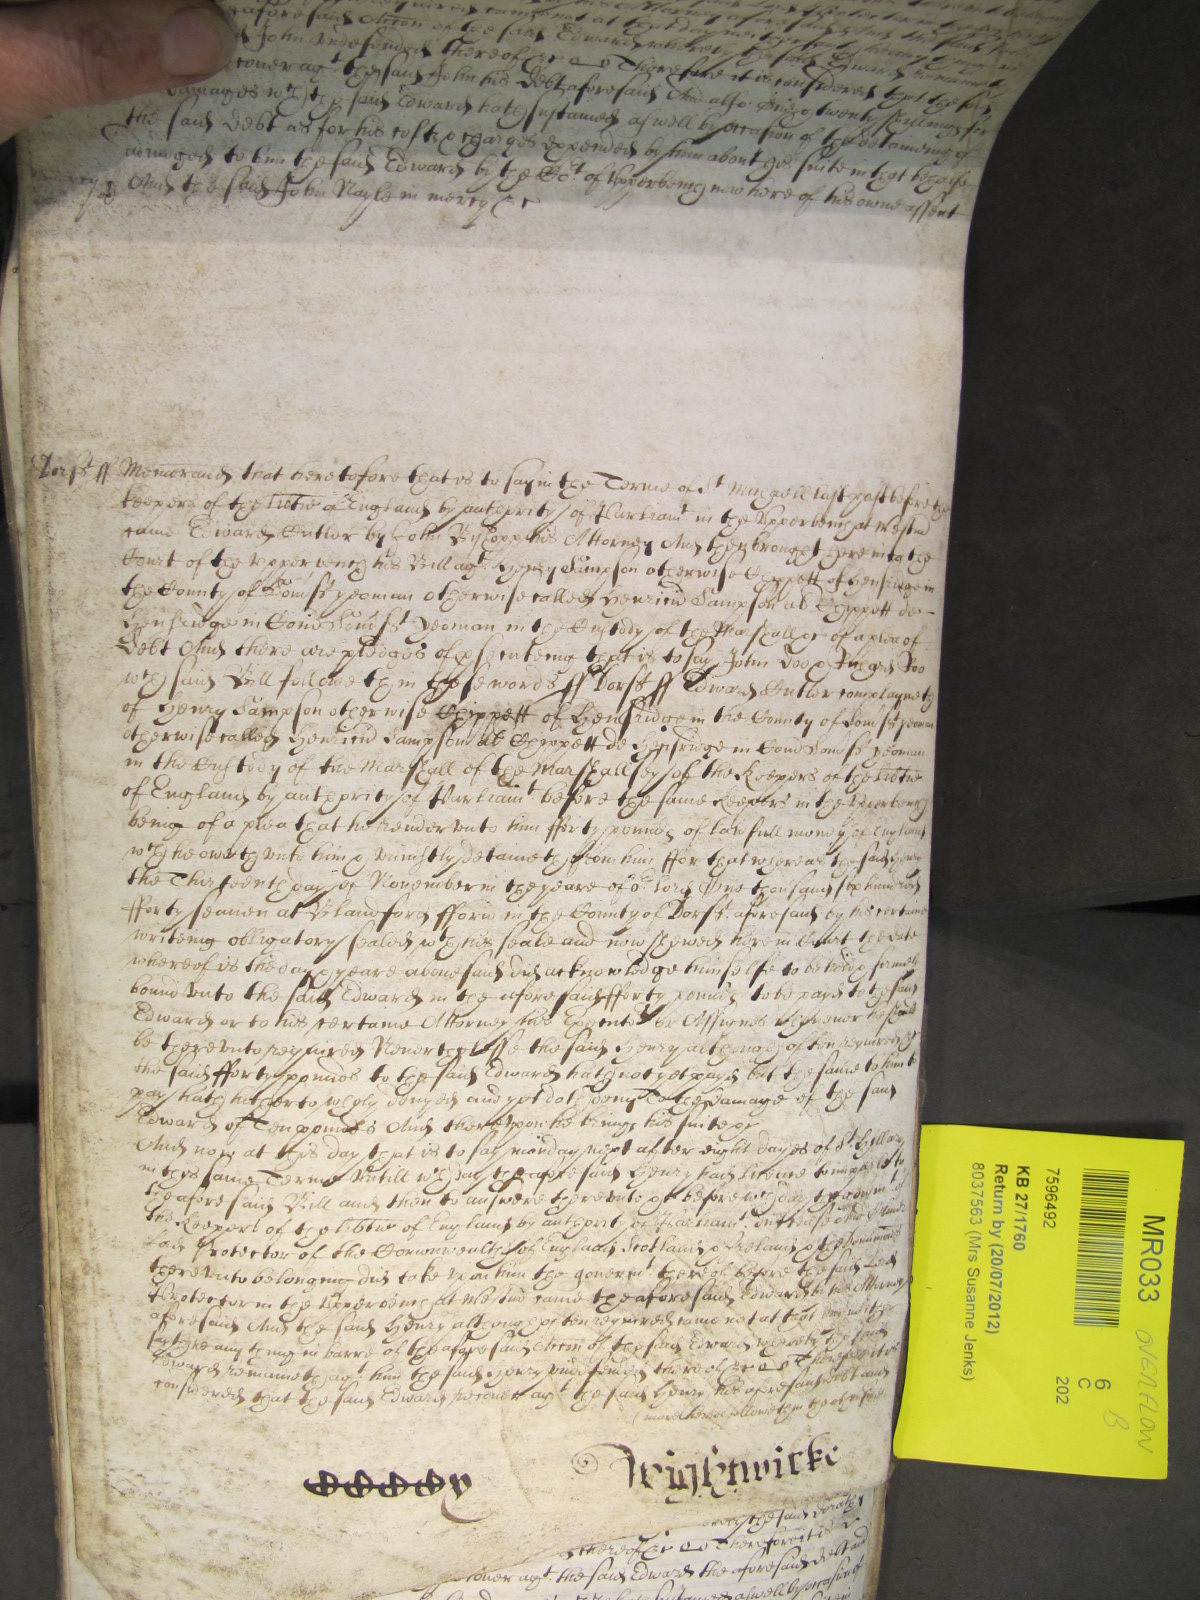 aforesaid Accion of the said Edward whereby the said Edward remaineth
John undefended thereof &c Therefore it is considered that the said
recover agt the said John his Debt aforesaid And also Seiz twenty shillings for
damages wch the said Edward hath sustained as well by occasion of the detaining of
the said Debt as for his costs & charges expended by him about his suite in that behalfe
adiudged to him the said Edward by the Cort of Upperbench now here of his owne assent
mercy And the said John Nayle in mercy &c
Dorst ss Memorand that heretofore that is to say in the Terme of St Michaell last past before the
Keepers of the Libtie of England by authority of Parliamt in the Upperbench at Westm
came Edward Cutler by John Bishopp his Attorney And then brought here into the
Court of the Upperbench his Bill agt Henry Sampson otherwise Chippett of Hensridge in
the County of Somst yeoman otherwise called Henricu Sampson als Chippett de
Hensridge in Com Somst yeoman in the Custody of the Marshall &c of a plea of
Debt And there are pledges of prosecuteing that is to say John Doo & Richard Roo
wch said Bill followeth in these words ss Dorst ss Edward Cutler complayneth
of Henry Sampson otherwise Chippett of Hensridge in the County of Somst yeoman
otherwise called Henricu Sampson als Chippett de Hensridge in Com Somst yeoman
in the Custody of the Marshall of the Marshallsey of the Keepers of the Libtie
of England by authority of Parliamt before the same Keepers in the Upperbench
being of a plea that he render unto him fforty pounds of lawfull money of England
wch he oweth unto him & uniustly detaineth from him ffor that whereas the said Henry
the Thirteenth day of November in the yeare of or Lord One thousand six hundred
fforty seaven at Blandford fforu in the County of Dorst aforesaid by his certaine
writeing obligatory sealed wth his seale and now shewed here in Court the date
whereof is the day & yeare abovesaid did acknowledge himselfe to be held & firmely
bound unto the said Edward in the aforesaid fforty pounds to be payd to the said
Edward or to his certaine Attorney his Executors or Assignes whenever he should
be thereunto required Neverthelesse the said Henry although often required
the said fforty pounds to the said Edward hath not yet payd but the same to him to
pay hath hitherto wholy denyed and yet doth deny To the Damage of the said
Edward of Ten pounds And thereupon he brings his suite &c
And now at this day that is to say monday next after eight dayes of St Hillary
in this same Terme Untill wch day the aforesaid Henry had licence to imparle to
the aforesaid Bill and then to answere thereunto &c before wch day
the Keepers of the libtie of England by authority of Parliamt
Lord Protector of the Comonwealth of England Scotland & Ireland & the Dominions
thereunto belonging did take upon him the governmt thereof before the said Lord
Protector in the Upperbench at Westm came the aforesaid Edward by his Attorney
aforesaid And the said Henry although often required came not at that day neither
any thing in barre of the aforesaid Accion of the said Edward whereby the said
Edward remaineth agt him the said Henry undefended thereof &c Therefore it is
considered that the said Edward recover agt the said Henry his aforesaid debt and
more hereof followeth in the other side
Wightwicke
the said
thereof &c Therefore it is
cover agt the said Edward the aforesaid debt and
as well by occasion of
MR033
OVERFLOW
B
6
C
202
7596492
KB 27/1760
Return by (20/07/2012)
8037563 (Mrs Susanne Jenks)